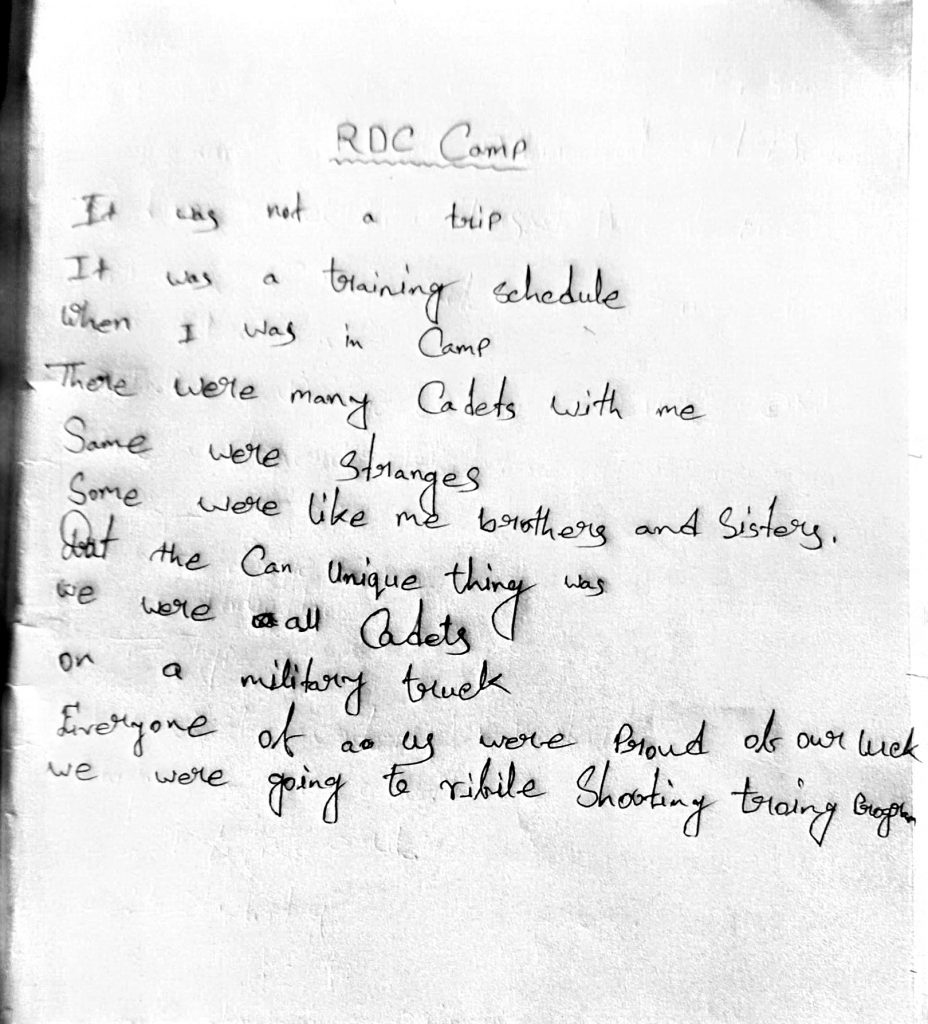 RDC Camp
It was not a trip
It was a training schedule
When I was in Camp
There were many Cadets with me
Same were Stranges
Some were like me brothers and Sisters.
But the Can Unique thing was
we were all Cadets
on a military truck
Everyone of us were Proud of our luck
we were going to rifile Shooting traing